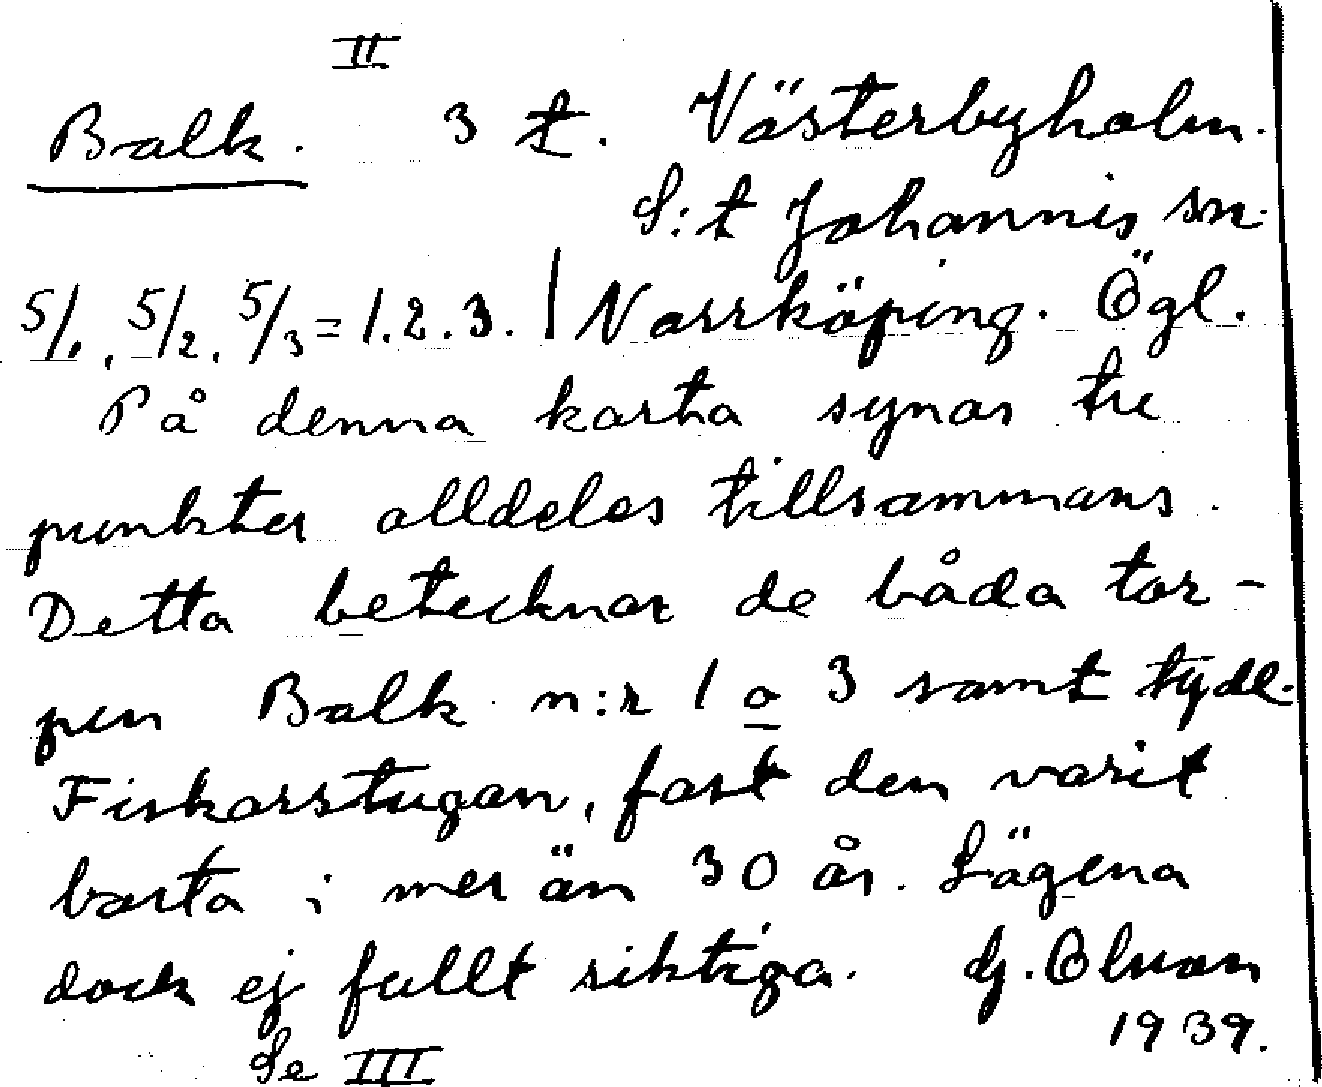 II
Balk. 3 t. Västerbyholm.
S:t Johannis sn.
5/1, 5/2, 5/3 = 1.2.3. | Norrköping. Ögl.
På denna karta synas tre
punkter alldeles tillsammans.
Detta betecknar de båda tor-
pen Balk n:r 1 o 3 samt tydl.
Fiskarstugan, fast den varit
borta i mer än 30 år. Lägena
dock ej fullt riktiga. G. Olsson
1939.
Se III